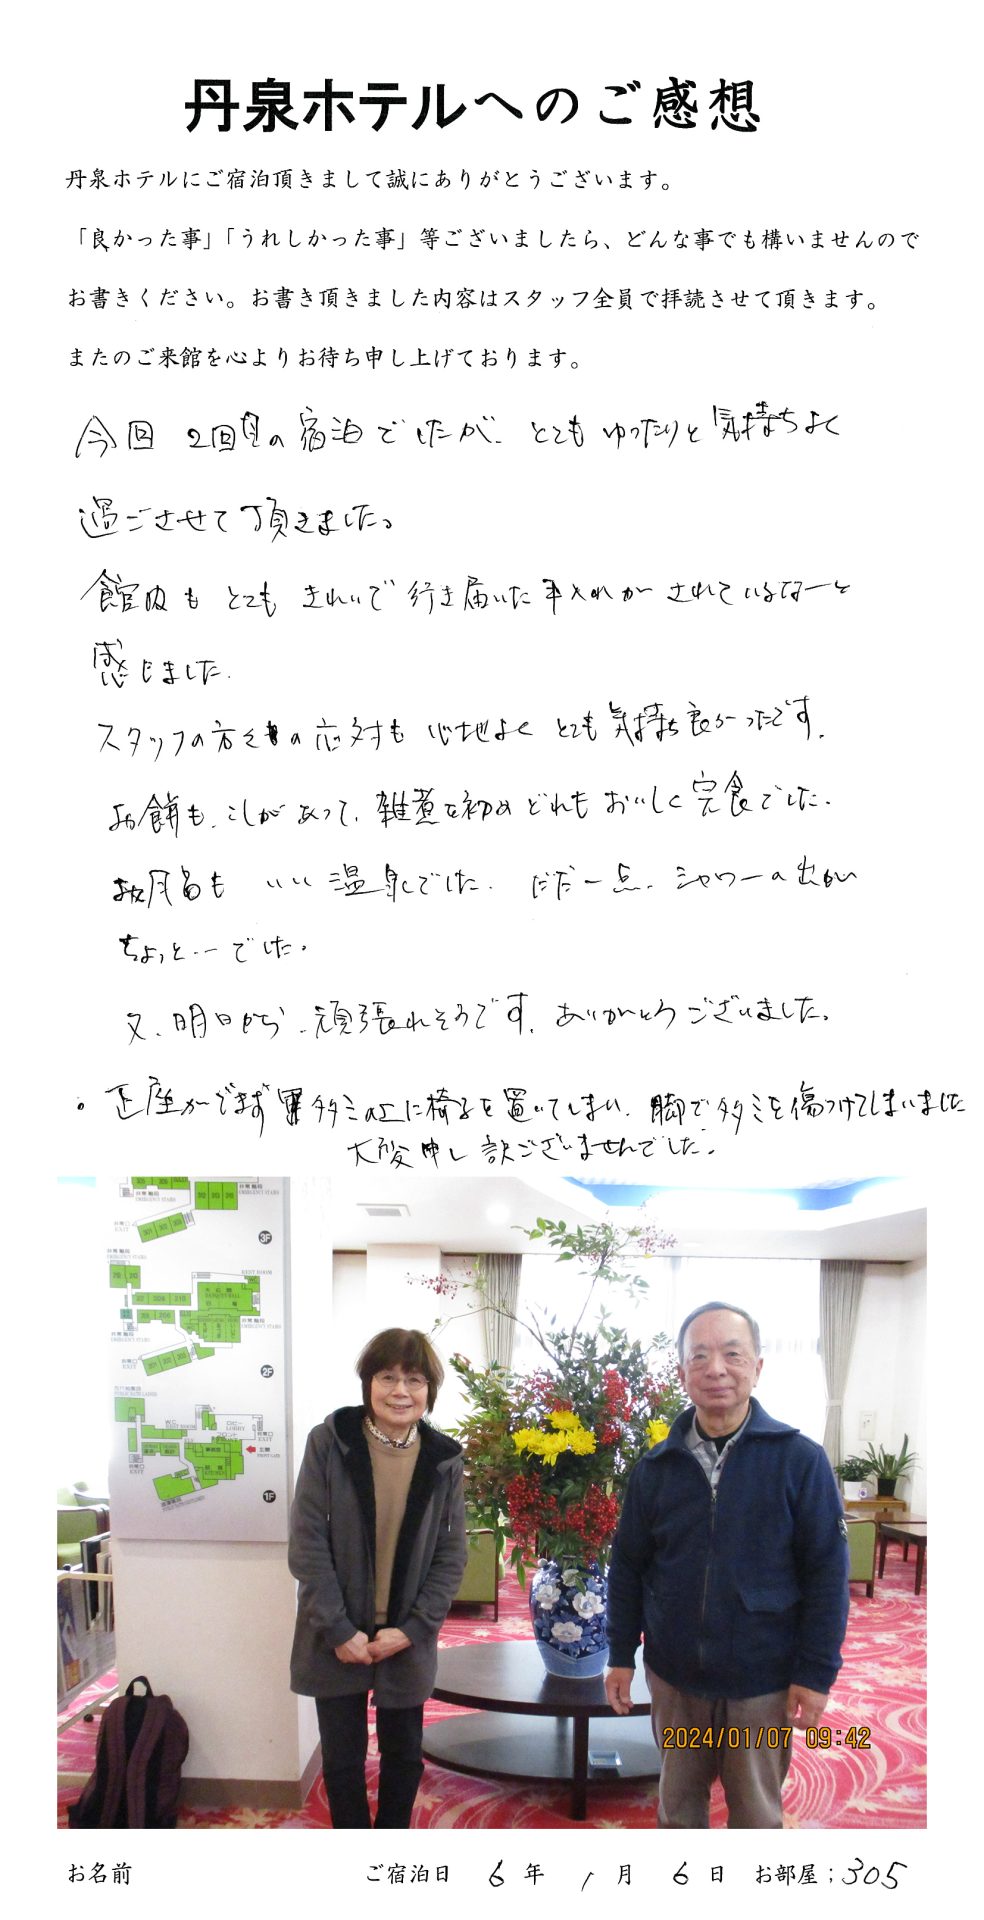 丹泉ホテルへのご感想
丹泉ホテルにご宿泊頂きまして誠にありがとうございます。
「良かった事」「うれしかった事」等ございましたら、どんな事でも構いませんので
お書きください。お書き頂きました内容はスタッフ全員で拝読させて頂きます。
またのご来館を心よりお待ち申し上げております。
今回 2回目の宿泊でしたが、とても ゆったりと気持ちよく
過ごさせて頂きました。
館内も とても きれいで行き届いた手入れが されているなーと
感じました.
スタッフの方々の応対も 心地よく とても気持ち良かったです.
お餅も、こしがあって、雑煮を初め どれも おいしく 完食でした.
お風呂も いい温泉でした. ただ一点. シャワーの出が
ちょっと‥ーでした.
又、明日から、頑張れそうです. ありがとうございました.
。正座ができず 畳の上に椅子を置いてしまい、脚でタタミを傷つけてしまいました
大変申し訳ございませんでした.
非常階段
EMERGENCY STAIRS
312 313 315
非常口
EXIT
301 302 303
3F
RENT ROOM
BANQUET HALL
非常階段
EMERGENCY STAIRS
非常口
EXIT
301 302 303
2F
W.C
ロビー
LOBBY
フロント
非常口
EXIT
玄関
FRONT GATE
非常口
EXIT
KITCHEN
1F
2024/01/07 09:42
お名前 ご宿泊日 6 年 1 月 6 日 お部屋；305